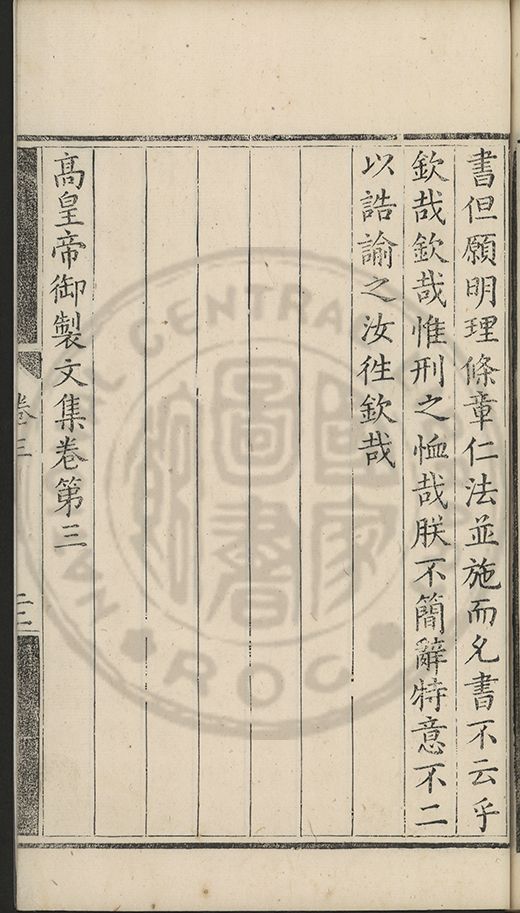 書但願明理條章仁法並施而允書不云乎
欽哉欽哉惟刑之恤哉朕不簡辭特意不二
以誥諭之汝徃欽哉
高皇帝御製文集卷第三
卷三
NATIONAL CENTRAL
國家圖書館
ROC